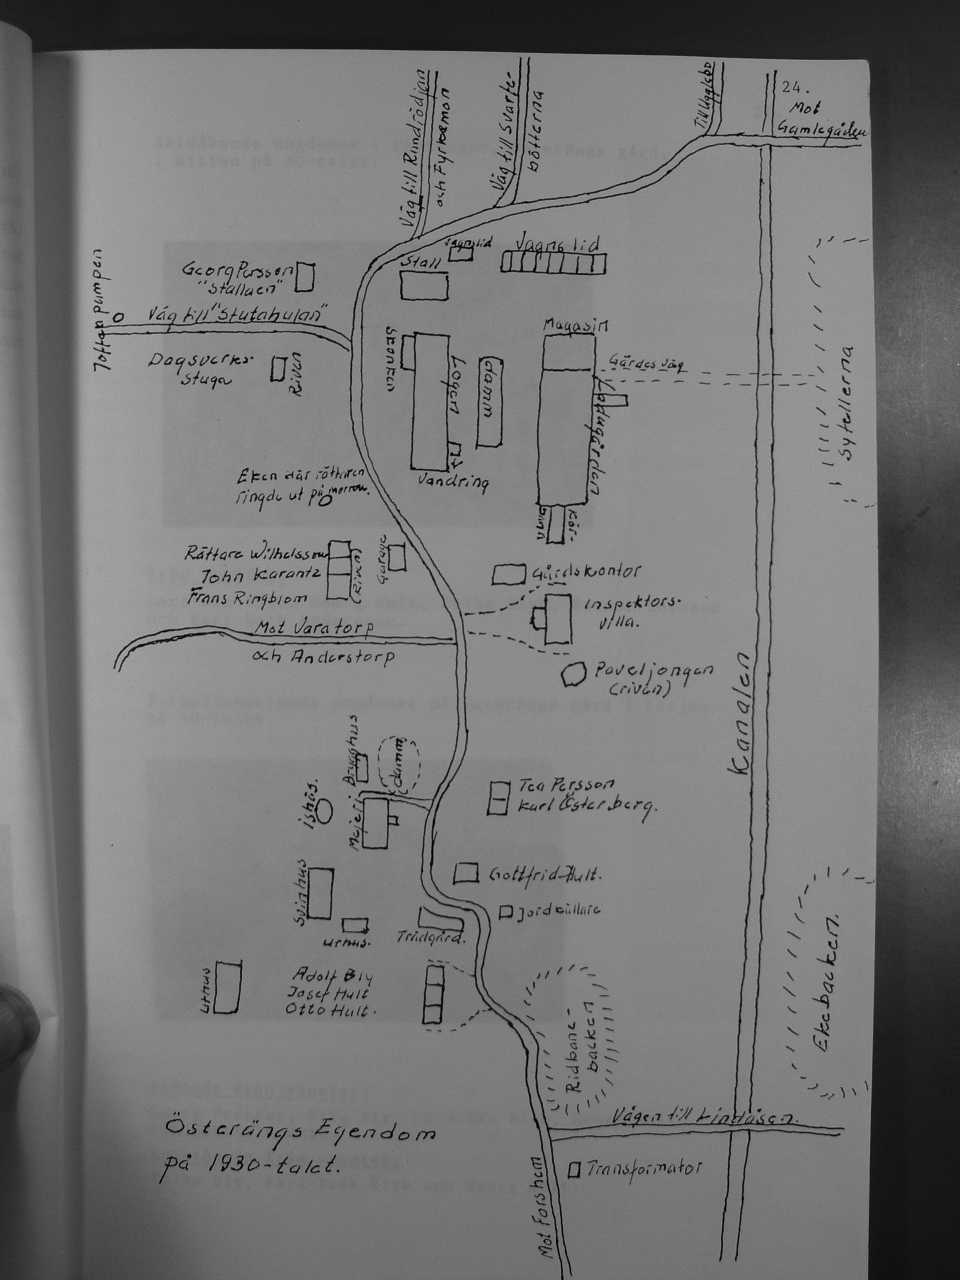 24.
Mot
Gamlegården
Till Ugglebo
Väg till Svarte-
bötterna
Väg till Rundrödjan
och Fyrkæmon
Vagnslid
Vagnslid
Stall
Georg Persson
"Stallaen"
Toften pumpen
Väg till "Stutahulan"
Dagsverks-
stuga
Riven
Skonken
Logen
damm
Magasin
Gärdes väg
Ladugården
Sytellerna
Vandring
Kör-
bana
Eken där rättaren
ringde ut på morron.
Rättare Wilhelsson
John Karantz
Frans Ringblom
(Riven)
Garage
Gårdskontor
Inspektors-
villa.
Mot Varatorp
och Anderstorp
Paveljongen
(riven)
Kanalen
Brygghus
damm
ishus.
Mejeri
Tea Persson
Karl Österberg.
Svinhus
Gottfrid Hult.
Jordkällare
uthus.
Trädgård.
uthus
Adolf Bly
Josef Hult
Otto Hult.
Ridbane-
backen
Ekebacken.
Vägen till Lindåsen.
Österängs Egendom
på 1930-talet.
Transformator
Mot Forshem